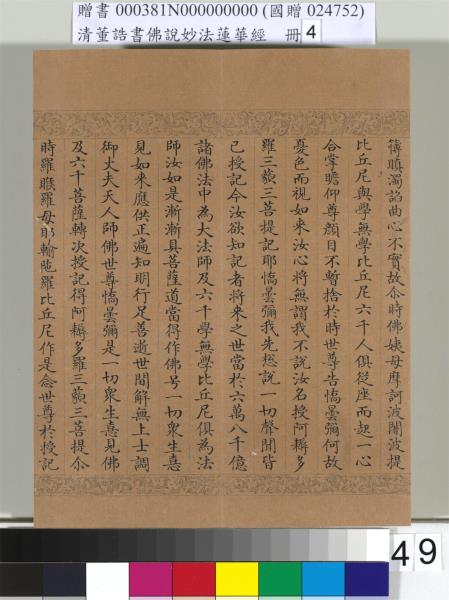 贈書 000381N000000000 (國贈 024752)
清董誥書佛說妙法蓮華經 冊4
簿瞋濁諂曲心不實故尒時佛姨母摩訶波闍波提
比丘尼與學無學比丘尼六千人俱從座而起一心
合掌瞻仰尊顏目不暫捨於時世尊告憍曇彌何故
憂色而視如來汝心將無謂我不說汝名授阿耨多
羅三藐三菩提記耶憍曇彌我先揔說一切聲聞皆
已授記今汝欲知記者將來之世當於六萬八千億
諸佛法中為大法師及六千學無學比丘尼俱為法
師汝如是漸漸具菩薩道當得作佛号一切衆生憙
見如来應供正遍知明行足善逝世間解無上士調
御丈夫天人師佛世尊憍曇彌是一切衆生憙見佛
及六千菩薩轉次授記得阿耨多羅三藐三菩提尒
時羅睺羅母耶輸陁羅比丘尼作是念世尊於授記
49